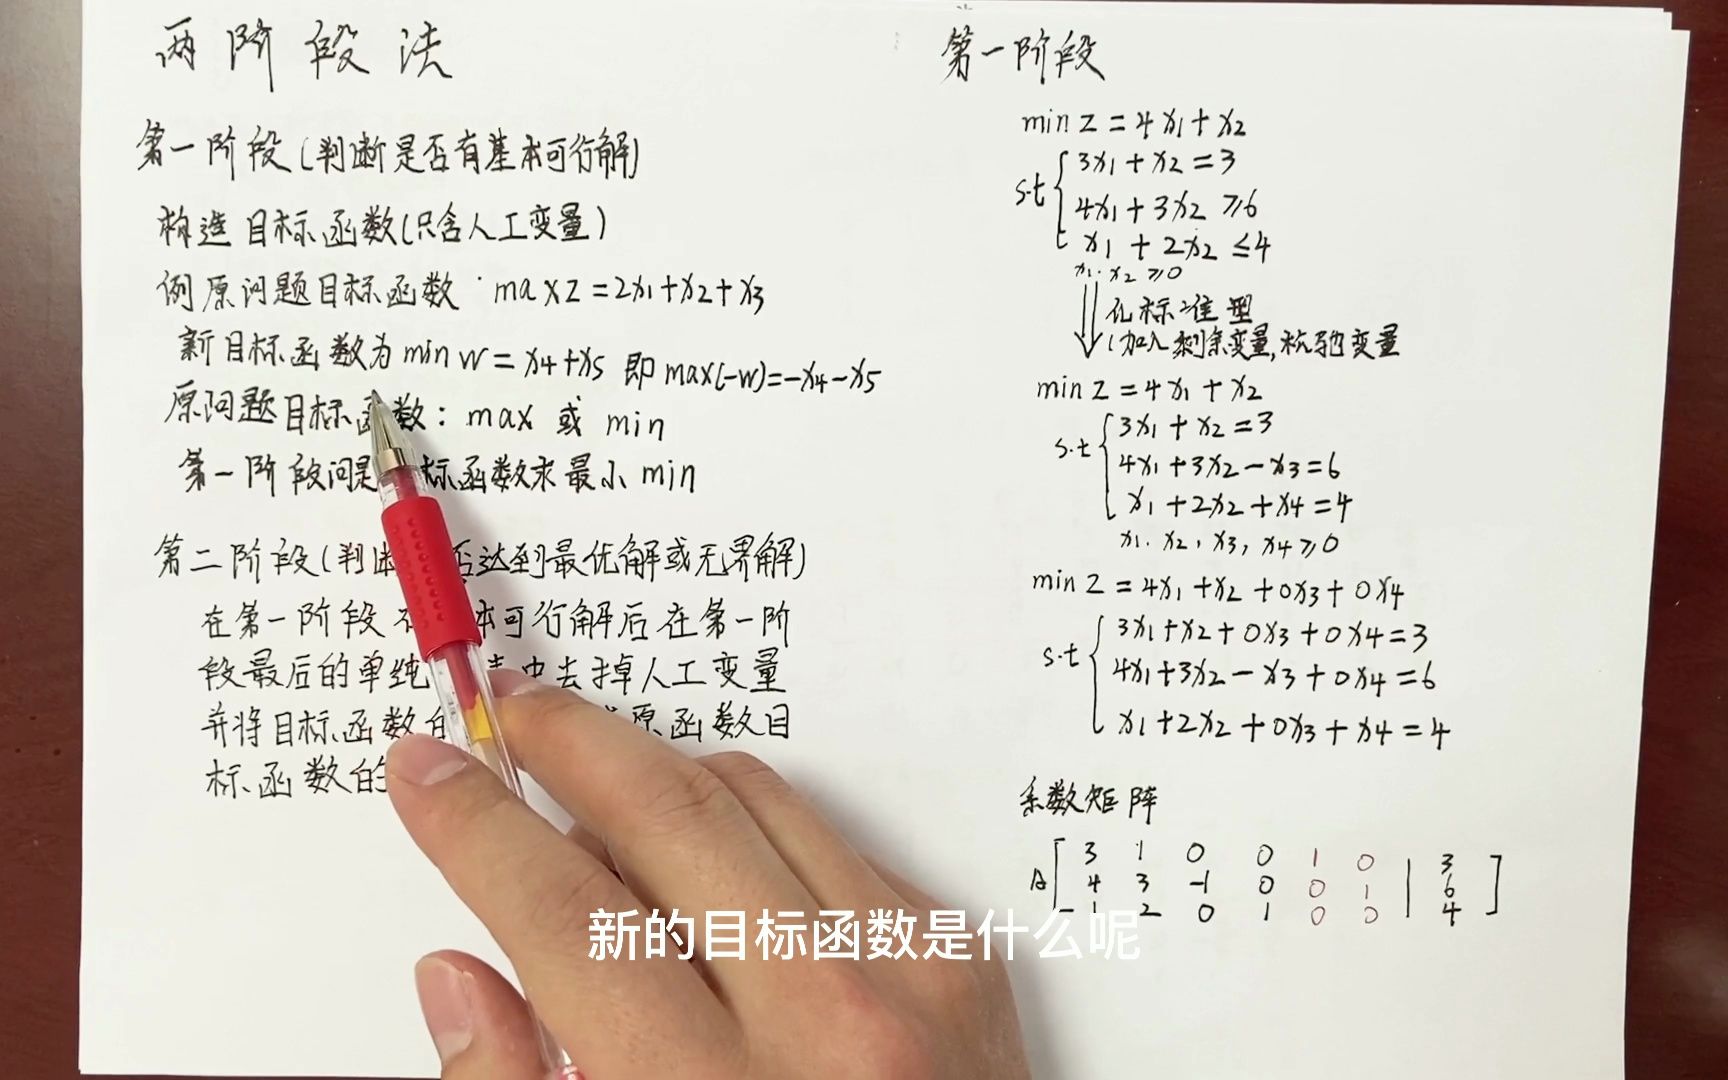 两阶段法
第一阶段(判断是否有基本可行解)
构造目标函数(只含人工变量)
例原问题目标函数: max z = 2x1 + x2 + x3
新目标函数为 min w = x4 + x5 即 max(-w) = -x4 - x5
原问题目标函数: max 或 min
第一阶段问是 标函数求最小 min
第二阶段(判断 否达到最优解或无界解)
在第一阶段 本可行解后在第一阶
段最后的单纯 中去掉人工变量
并将目标函数 原函数目
标函数的
第一阶段
min z = 4x1 + x2
s.t
3x1 + x2 = 3
4x1 + 3x2 ≥ 6
x1 + 2x2 ≤ 4
x1. x2 ≥ 0
化标准型
(加入剩余变量,松弛变量
min z = 4x1 + x2
s.t
3x1 + x2 = 3
4x1 + 3x2 - x3 = 6
x1 + 2x2 + x4 = 4
x1. x2, x3, x4 ≥ 0
min z = 4x1 + x2 + 0x3 + 0x4
s.t
3x1 + x2 + 0x3 + 0x4 = 3
4x1 + 3x2 - x3 + 0x4 = 6
x1 + 2x2 + 0x3 + x4 = 4
系数矩阵
3 1 0 0 1 0 | 3
A 4 3 -1 0 0 1 | 6
1 2 0 1 0 0 | 4
新的目标函数是什么呢